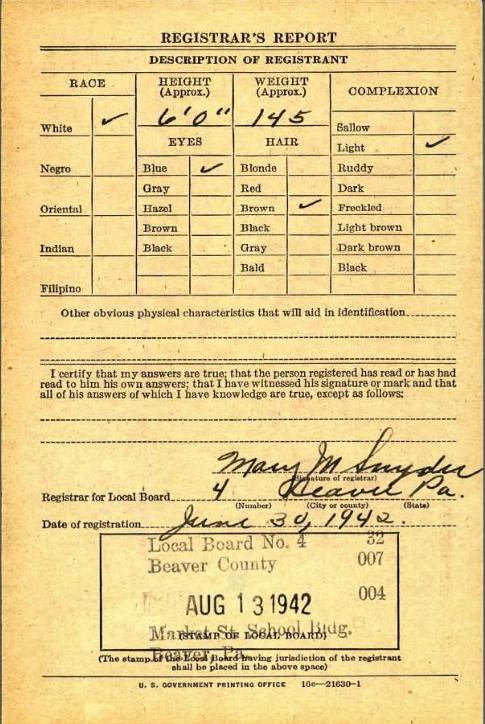 REGISTRAR'S REPORT
DESCRIPTION OF REGISTRANT
RACE HEIGHT (Approx.) WEIGHT (Approx.) COMPLEXION
White ✓ 6'0" 145 Sallow
EYES HAIR Light ✓
Negro Blue ✓ Blonde Ruddy
Gray Red Dark
Oriental Hazel Brown ✓ Freckled
Brown Black Light brown
Indian Black Gray Dark brown
Bald Black
Filipino
Other obvious physical characteristics that will aid in identification
I certify that my answers are true; that the person registered has read or has had
read to him his own answers; that I have witnessed his signature or mark and that
all of his answers of which I have knowledge are true, except as follows:
Mary M Snyder
(Signature of registrar)
Registrar for Local Board 4 Beaver Pa.
(Number) (City or county) (State)
Date of registration June 30, 1942.
Local Board No. 4 32
Beaver County 007
AUG 13 1942 004
Market St. School Bldg.
(STAMP OF LOCAL BOARD)
Beaver, Pa.
(The stamp of the Local Board having jurisdiction of the registrant
shall be placed in the above space)
U. S. GOVERNMENT PRINTING OFFICE 16—21630-1